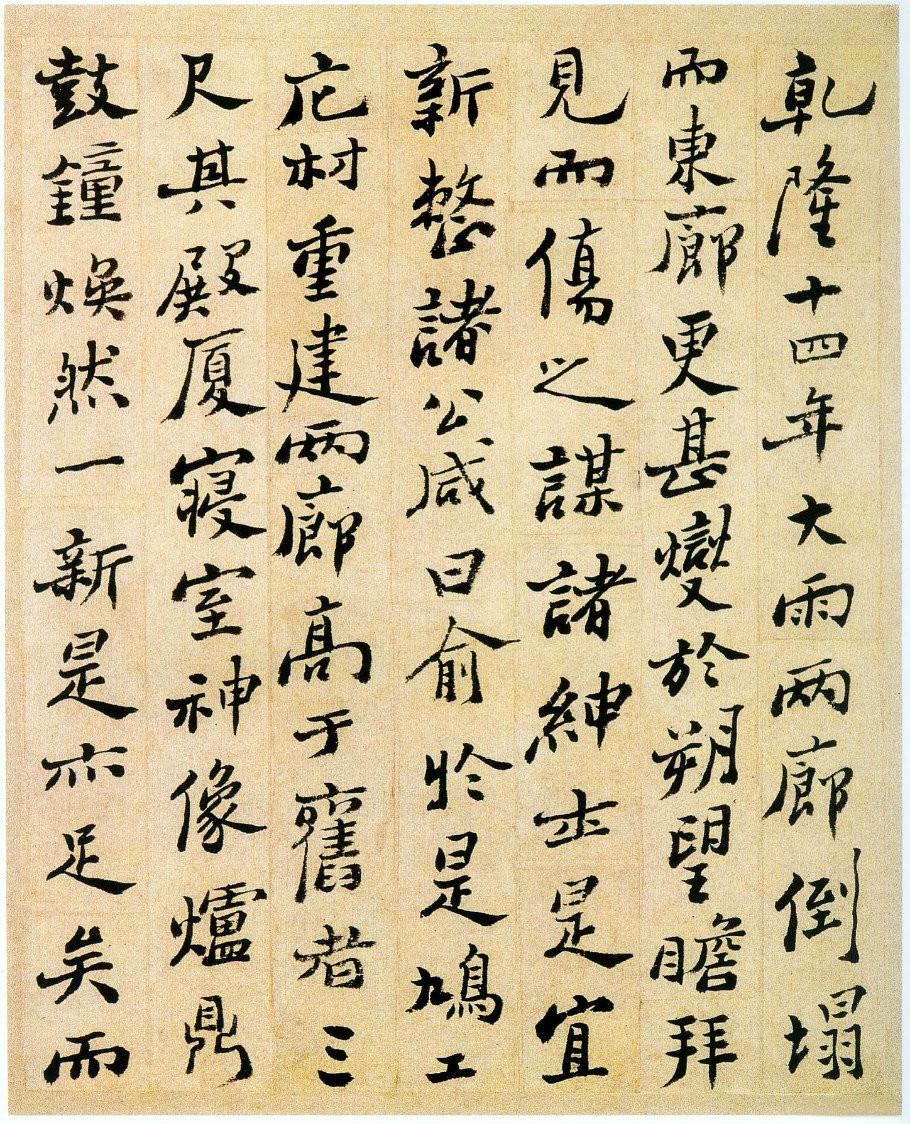 乾隆十四年大雨兩廊倒塌
而東廊更甚燮於朔望瞻拜
見而傷之謀諸紳士是宜
新整諸公咸曰俞於是鳩工
庀材重建兩廊高于舊者三
尺其殿厦寢室神像爐鼎
鼓鐘煥然一新是亦足矣而